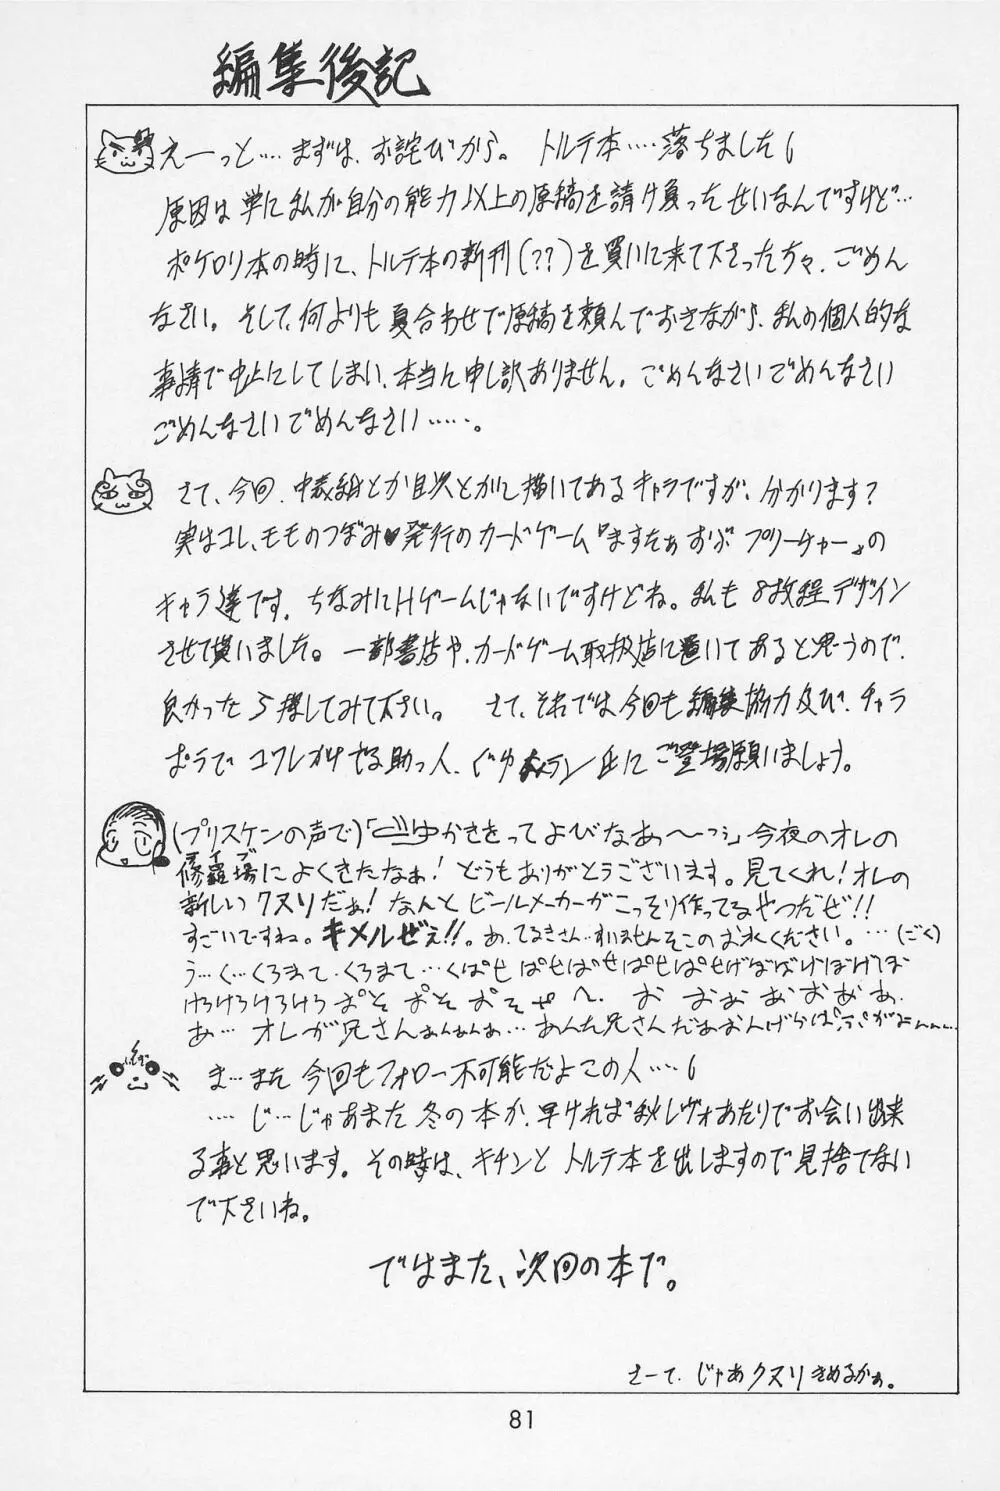 編集後記
えーっと…まずは、お詫びから。 トルテ本‥‥落ちました
原因は単に私が自分の能力以上の原稿を請け負ったせいなんですけど…
ポケロリ本の時に、トルテ本の新刊(??)を買いに来て下さった方々、ごめん
なさい。そして、何よりも夏合わせで原稿を頼んでおきながら、私の個人的な
事情で中止にしてしまい、本当に申し訳ありません。ごめんなさいごめんなさい
ごめんなさいごめんなさい‥‥‥。
さて、今回、中表紙とか目次とかに描いてあるキャラですが、分かります?
実はコレ、モモのつぼみ♥発行のカードゲーム『ますたぁおぶ プリーチャー』の
キャラ達です。ちなみにHゲームじゃないですけどね。私も8枚程デザイン
させて貰いました。一部書店や、カードゲーム取扱店に置いてあると思うので、
良かったら探してみて下さい。 さて、それでは今回も編集協力及び、チャラ
ぽらでコワレかけてる助っ人、氏にご登場願いましょう。
(プリスケンの声で)「かさきってよびなぁ〜っ」今夜のオレの
修羅場によくきたなぁ!どうもありがとうございます。見てくれ!オレの
新しいクスリだぁ!なんとビールメーカーがこっそり作ってるやつだぜ!!
すごいですね。キメルぜぇ!!。あ、てるきさん…すいませんそこのお水ください。…(ごく)
う…く…くろまて、くろまて…くぱせぱせばせぱせぱせげばばげぼげぼ
けろけろけろけろおそおそおそ お おおおおおああ、
あ… オレが兄さんぁんぁんぁ… あんた兄さんだぁ
ま…また今回もフォロー不可能だよこの人‥‥
‥‥じ…じゃあまた冬の本か、早ければ秋レヴォあたりでお会い出来
る事と思います。その時は、キチンとトルテ本を出しますので見捨てない
で下さいね。
ではまた、次回の本で。
さーて、じゃあクスリきめるかぁ。
81